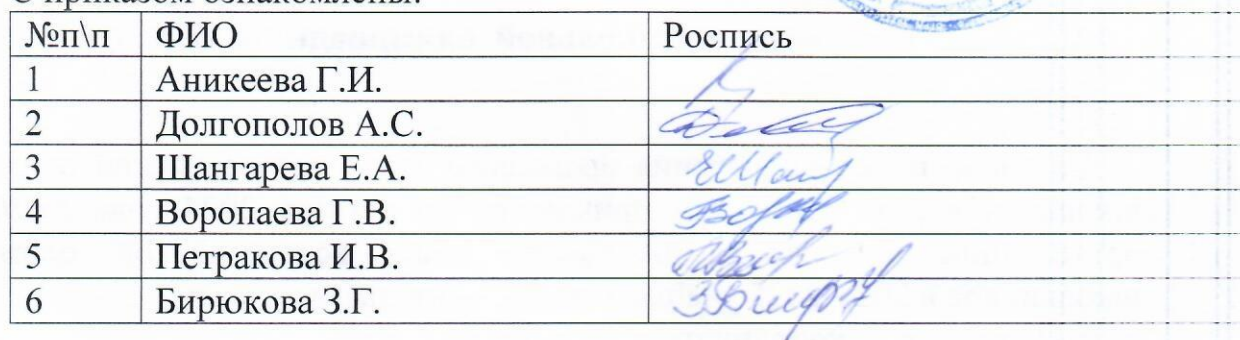 С приказом ознакомлены:
№п\п ФИО Роспись
1 Аникеева Г.И.
2 Долгополов А.С.
3 Шангарева Е.А.
4 Воропаева Г.В.
5 Петракова И.В.
6 Бирюкова З.Г.